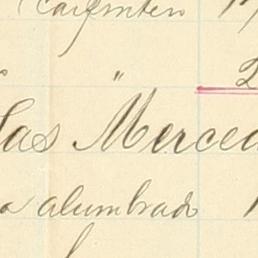 Carpinten
" 2
las Merced
a alumbrado 1